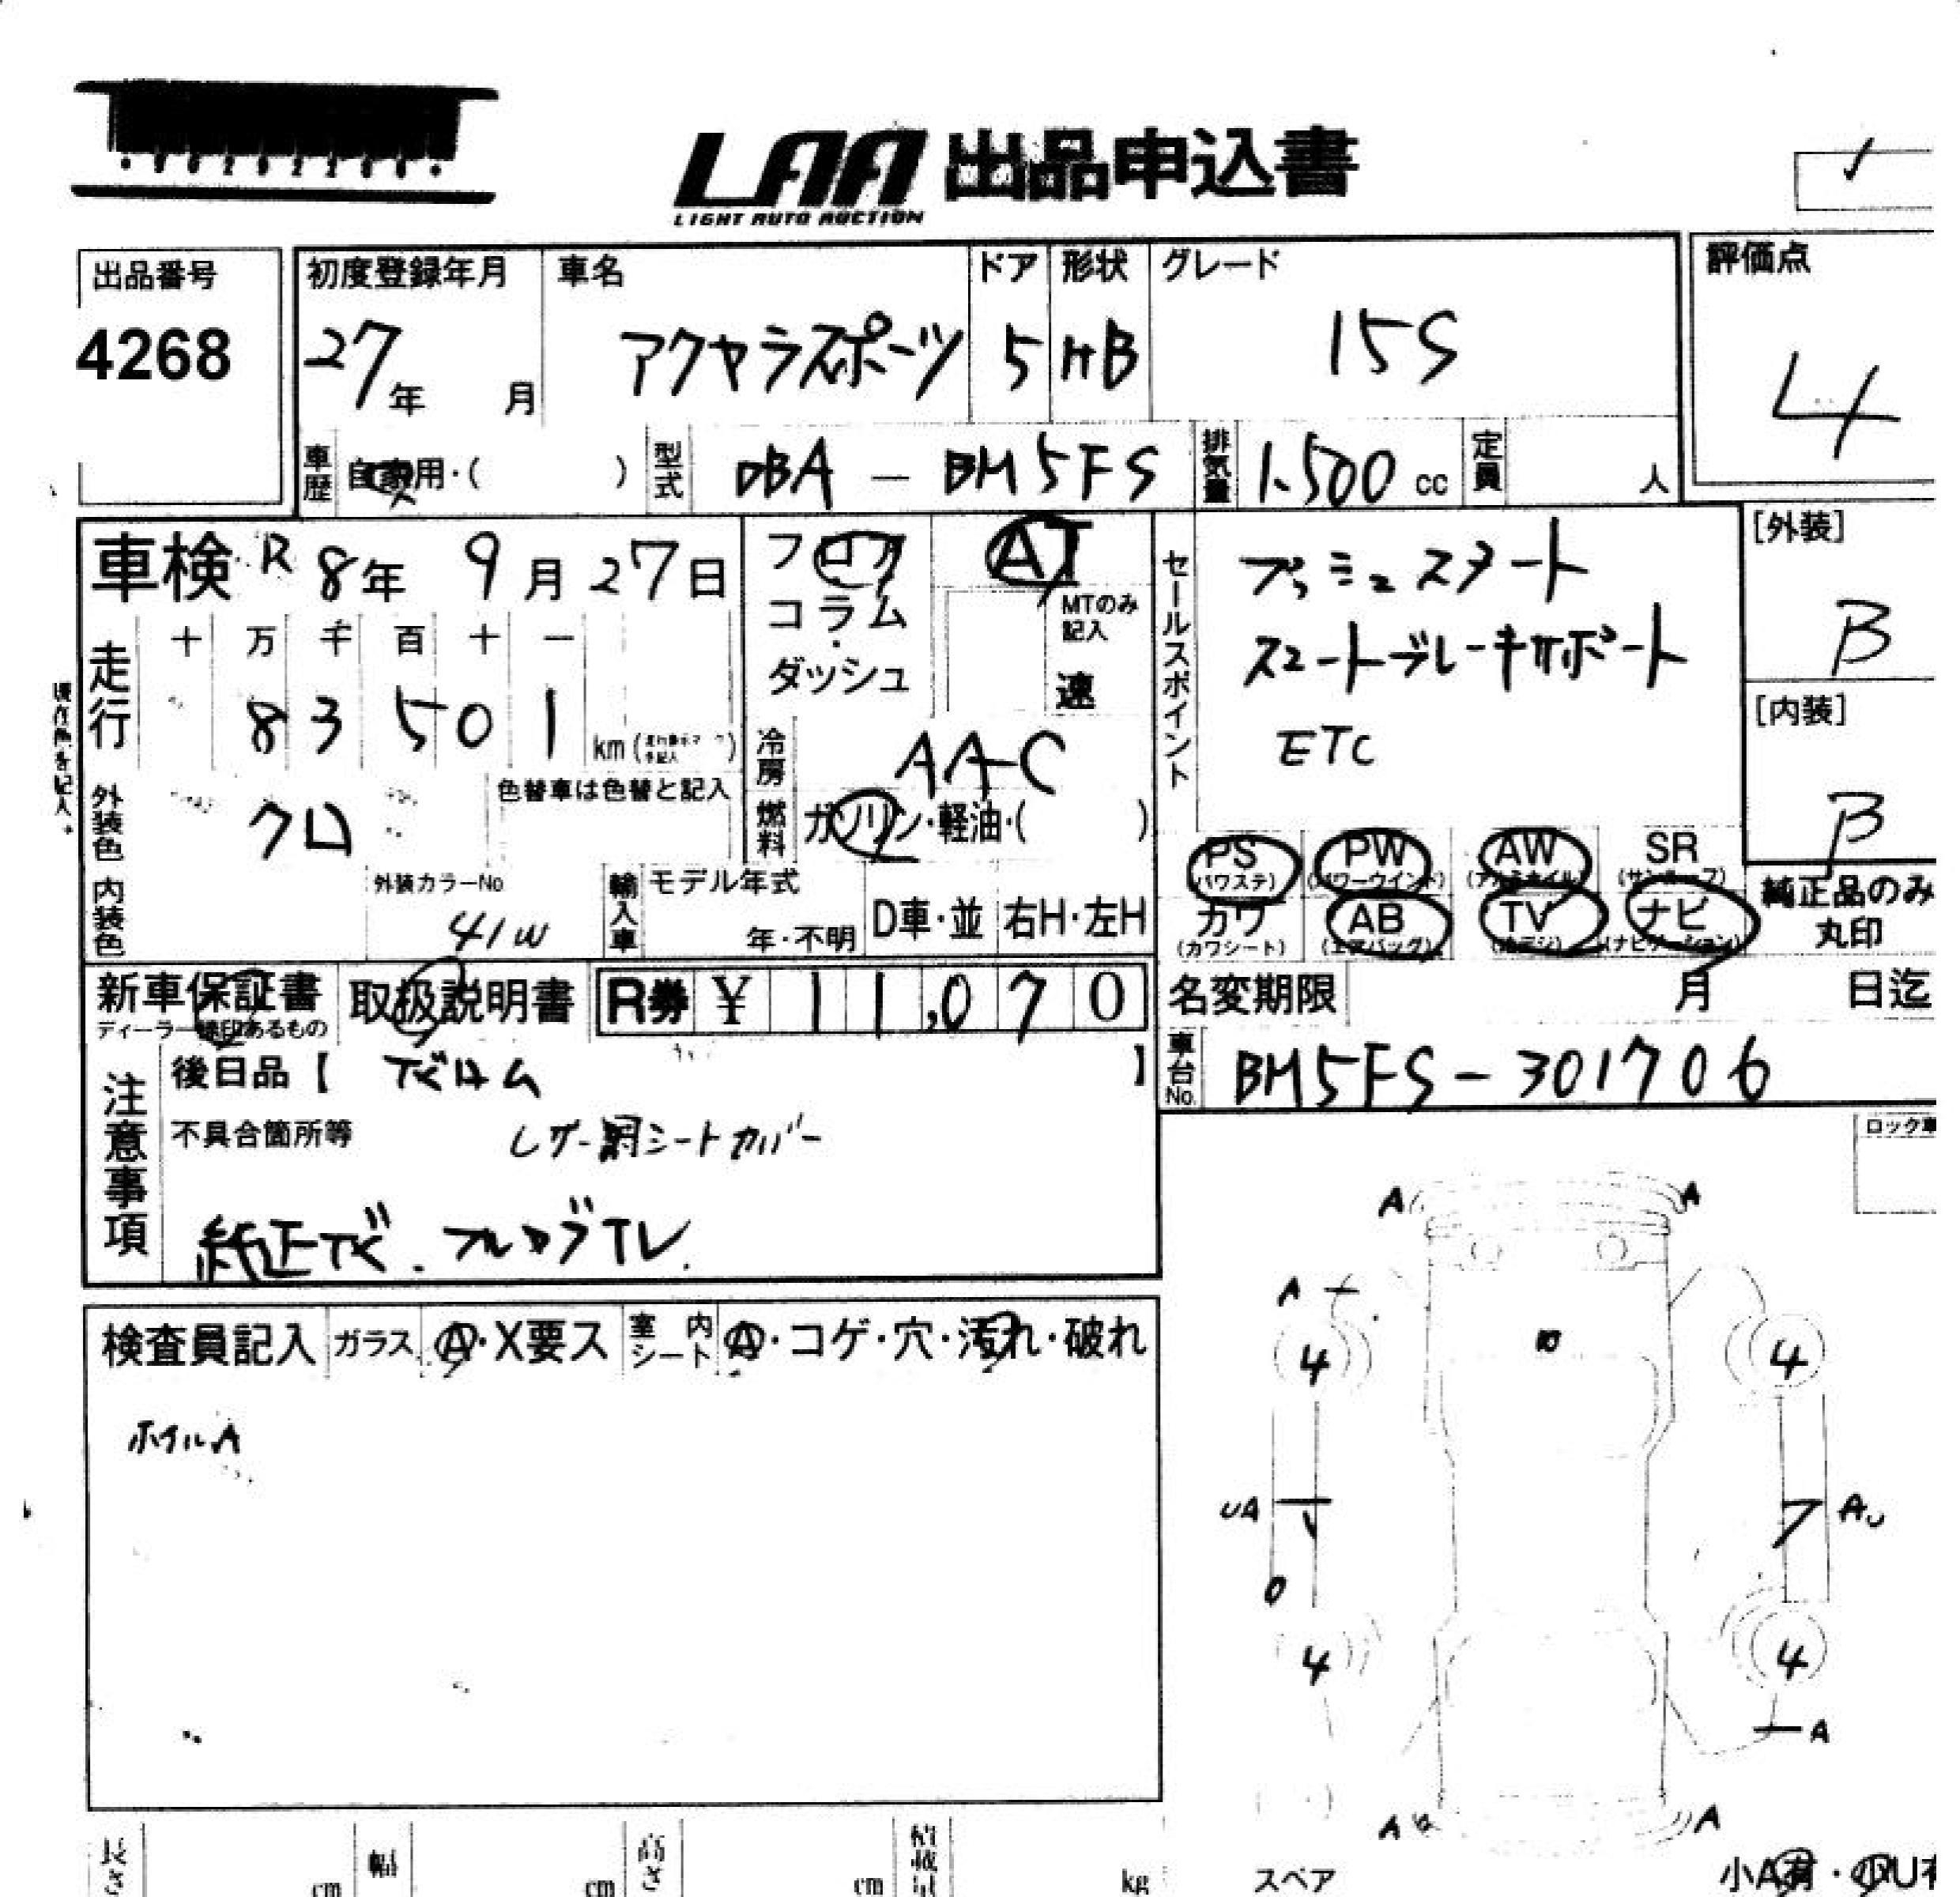 LAA 出品申込書
LIGHT AUTO AUCTION
出品番号
4268
初度登録年月
27年 月
車名
アクセラスポーツ
ドア
5
形状
HB
グレード
15S
評価点
4
車歴 自家用・( )
型式 DBA - BM5FS
排気量 1.500 cc
定員 人
車検 R 8年 9月 27日
走行 十 万 千 百 十 一
8 3 5 0 1 km
現在色を記入。
外装色 クロ
色替車は色替と記入
内装色
外装カラーNo
41W
フロア
コラム
・
ダッシュ
AT
MTのみ
記入
速
冷房 AAC
燃料 ガソリン・軽油・( )
輸入車 モデル年式
年・不明
D車・並
右H・左H
セールスポイント
プッシュスタート
スマートブレーキサポート
ETC
PS PW AW SR
(パワステ) (パワーウインド) (アルミホイル) (サンルーフ)
カワ AB TV ナビ
(カワシート) (エアバッグ) (地デジ) (ナビゲーション)
[外装]
B
[内装]
B
純正品のみ
丸印
新車保証書
ディーラー捺印あるもの
取扱説明書
R券 ¥ 11,070
名変期限 月 日迄
車台No. BM5FS-301706
注意事項
後日品【 】
不具合箇所等
レザー調シートカバー
純正 フルセグTV.
検査員記入 ガラス A・X要ス 室内シート A・コゲ・穴・汚れ・破れ
ホイルA
ロック車
A A
A
4 4
UA
A
4 4
A
A A
長さ cm 幅 cm 高さ cm 積載量 kg
スペア
小A有・小U有